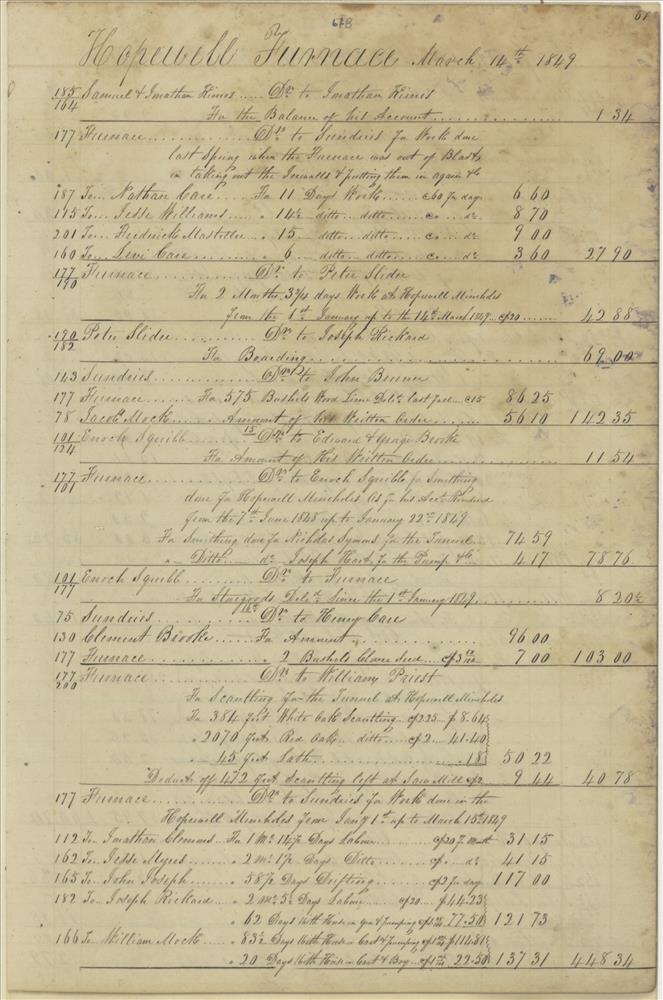 678
51
Hopewell Furnace March 14th 1849
185/164 Samuel & Jonathan Hines Dr to Jonathan Hines
For the Balance of his Account 1 34
177 Furnace Dr to Sundries for Work done
last Spring when the Furnace was out of Blast
in taking out the Inwalls & putting them in again &c
187 To Nathan Care For 11 Days Work c60 pr day 6 60
115 To Jesse Williams " 14½ ditto ditto c do 8 70
201 To Frederick " 15 ditto ditto c do 9 00
160 To Levi Care " 6 ditto ditto c do 3 60 27 90
177/190 Furnace Dr to Peter Slider
For 2 Months 3¾ days Work at Hopewell Mineholes
from the 1st January up to the 14th March 1849 @20 42 88
190/182 Peter Slider Dr to Joseph Rickard
For Boarding 69 00
143 Sundries Dr to John Benner
177 Furnace For 575 Bushels Wood Lime Deld last fall c15 86 25
78 Jacob Mock Amount of his Written Order 56 10 142 35
15
101/124 Enoch Squibb Dr to Edward & George Brooke
For Amount of His Written Order 11 54
177/101 Furnace Dr to Enoch Squibb for Smithing
done for Hopewell Mineholes as for his Acct Rendered
from the 7th June 1848 up to January 22nd 1849
For Smithing done for Nicholas Symons for the Tunnel 74 59
" Ditto do Joseph Hart for the Pump &c 4 17 78 76
101/177 Enoch Squibb Dr to Furnace
For Storegoods Deld Since the 1st January 1849 8 20½
16th
75 Sundries Dr to Henry Care
130 Clement Brooke For Amount 96 00
177 Furnace " 2 Bushels Clover Seed 7 00 103 00
177/200 Furnace Dr to William Priest
For Scantling for the Tunnel at Hopewell Mineholes
For 384 feet White Oak Scantling @225 $8.64
" 2070 feet Red Oak ditto @2 41.40
" 45 feet Lath .18 50 22
Deduct off 472 feet Scantling left at Saw Mill @2 9 44 40 78
177 Furnace Dr to Sundries for Work done in the
Hopewell Mineholes from Jany 1st up to March 15th 1849
112 To Jonathan Clemens For 1 Mo 14½ Days Labour @20 pr Month 31 15
162 To Jesse Myers " 2 Mo 1½ Days Ditto @ do 41 15
165 To John Joseph " 58½ Days Drifting @2 pr day 117 00
182 To Joseph Rickard " 2 Mo 5½ Days Labour @20 $44.23
" 62 Days With Horse in Gin & Pumping 77.50 121 73
166 To William Mock " 83½ Days With Horse in Cart & Pumping $114.81
" 20 Days With Horse in Cart & Boy 22.50 137 31 448 34